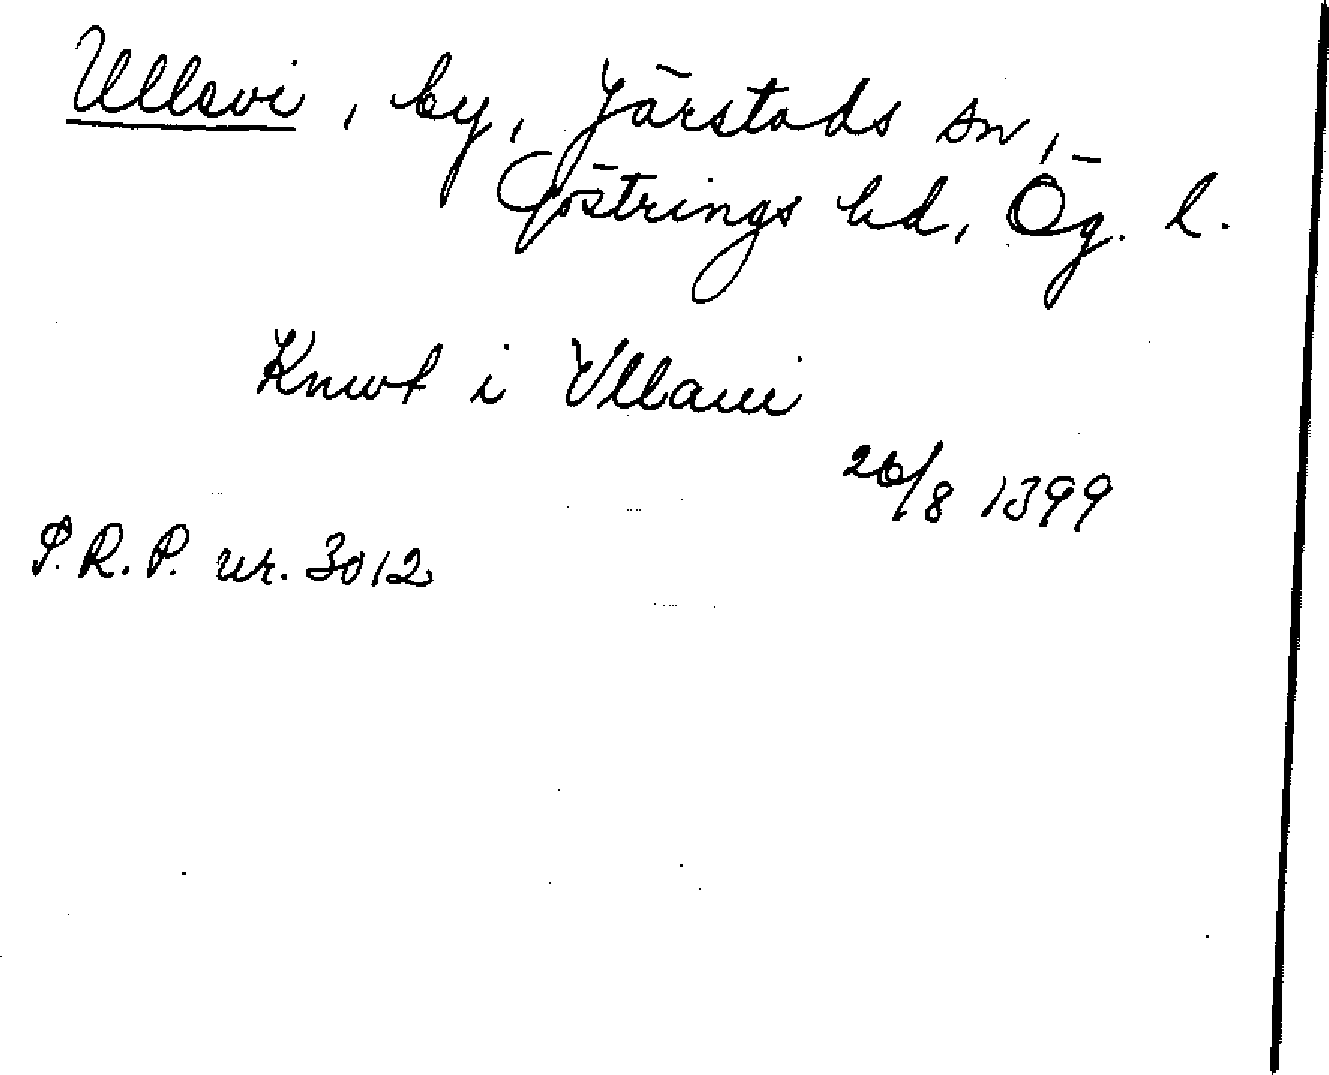 Ullevi, by, Järstads sn,
Göstrings hd, Ög. l.
Knwt i Vllaui
26/8 1399
S.R.P. nr. 3012